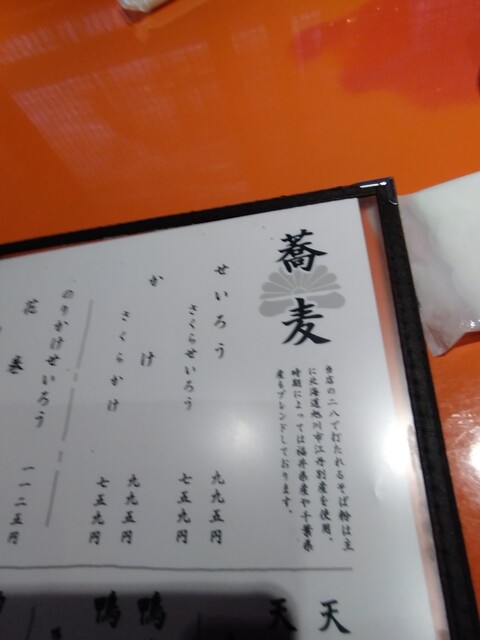 蕎麦
当店の二八で打たれるそば粉は主
に北海道旭川市江丹別産を使用、
時期によっては福井県産や千葉県
産もブレンドしております。
せいろう 九九五円
さくらせいろう 七五九円
かけ 九九五円
さくらかけ 七五九円
のりかけせいろう
花巻 一一二五円
天
天
鴨
鴨